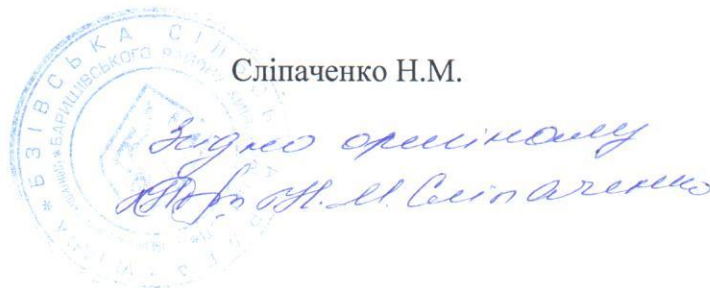 Сліпаченко Н.М.
Згідно оригіналу
Н.М. Сліпаченко
БЗІВСЬКА СІЛЬСЬКА
БАРИШІВСЬКОГО РАЙОНУ